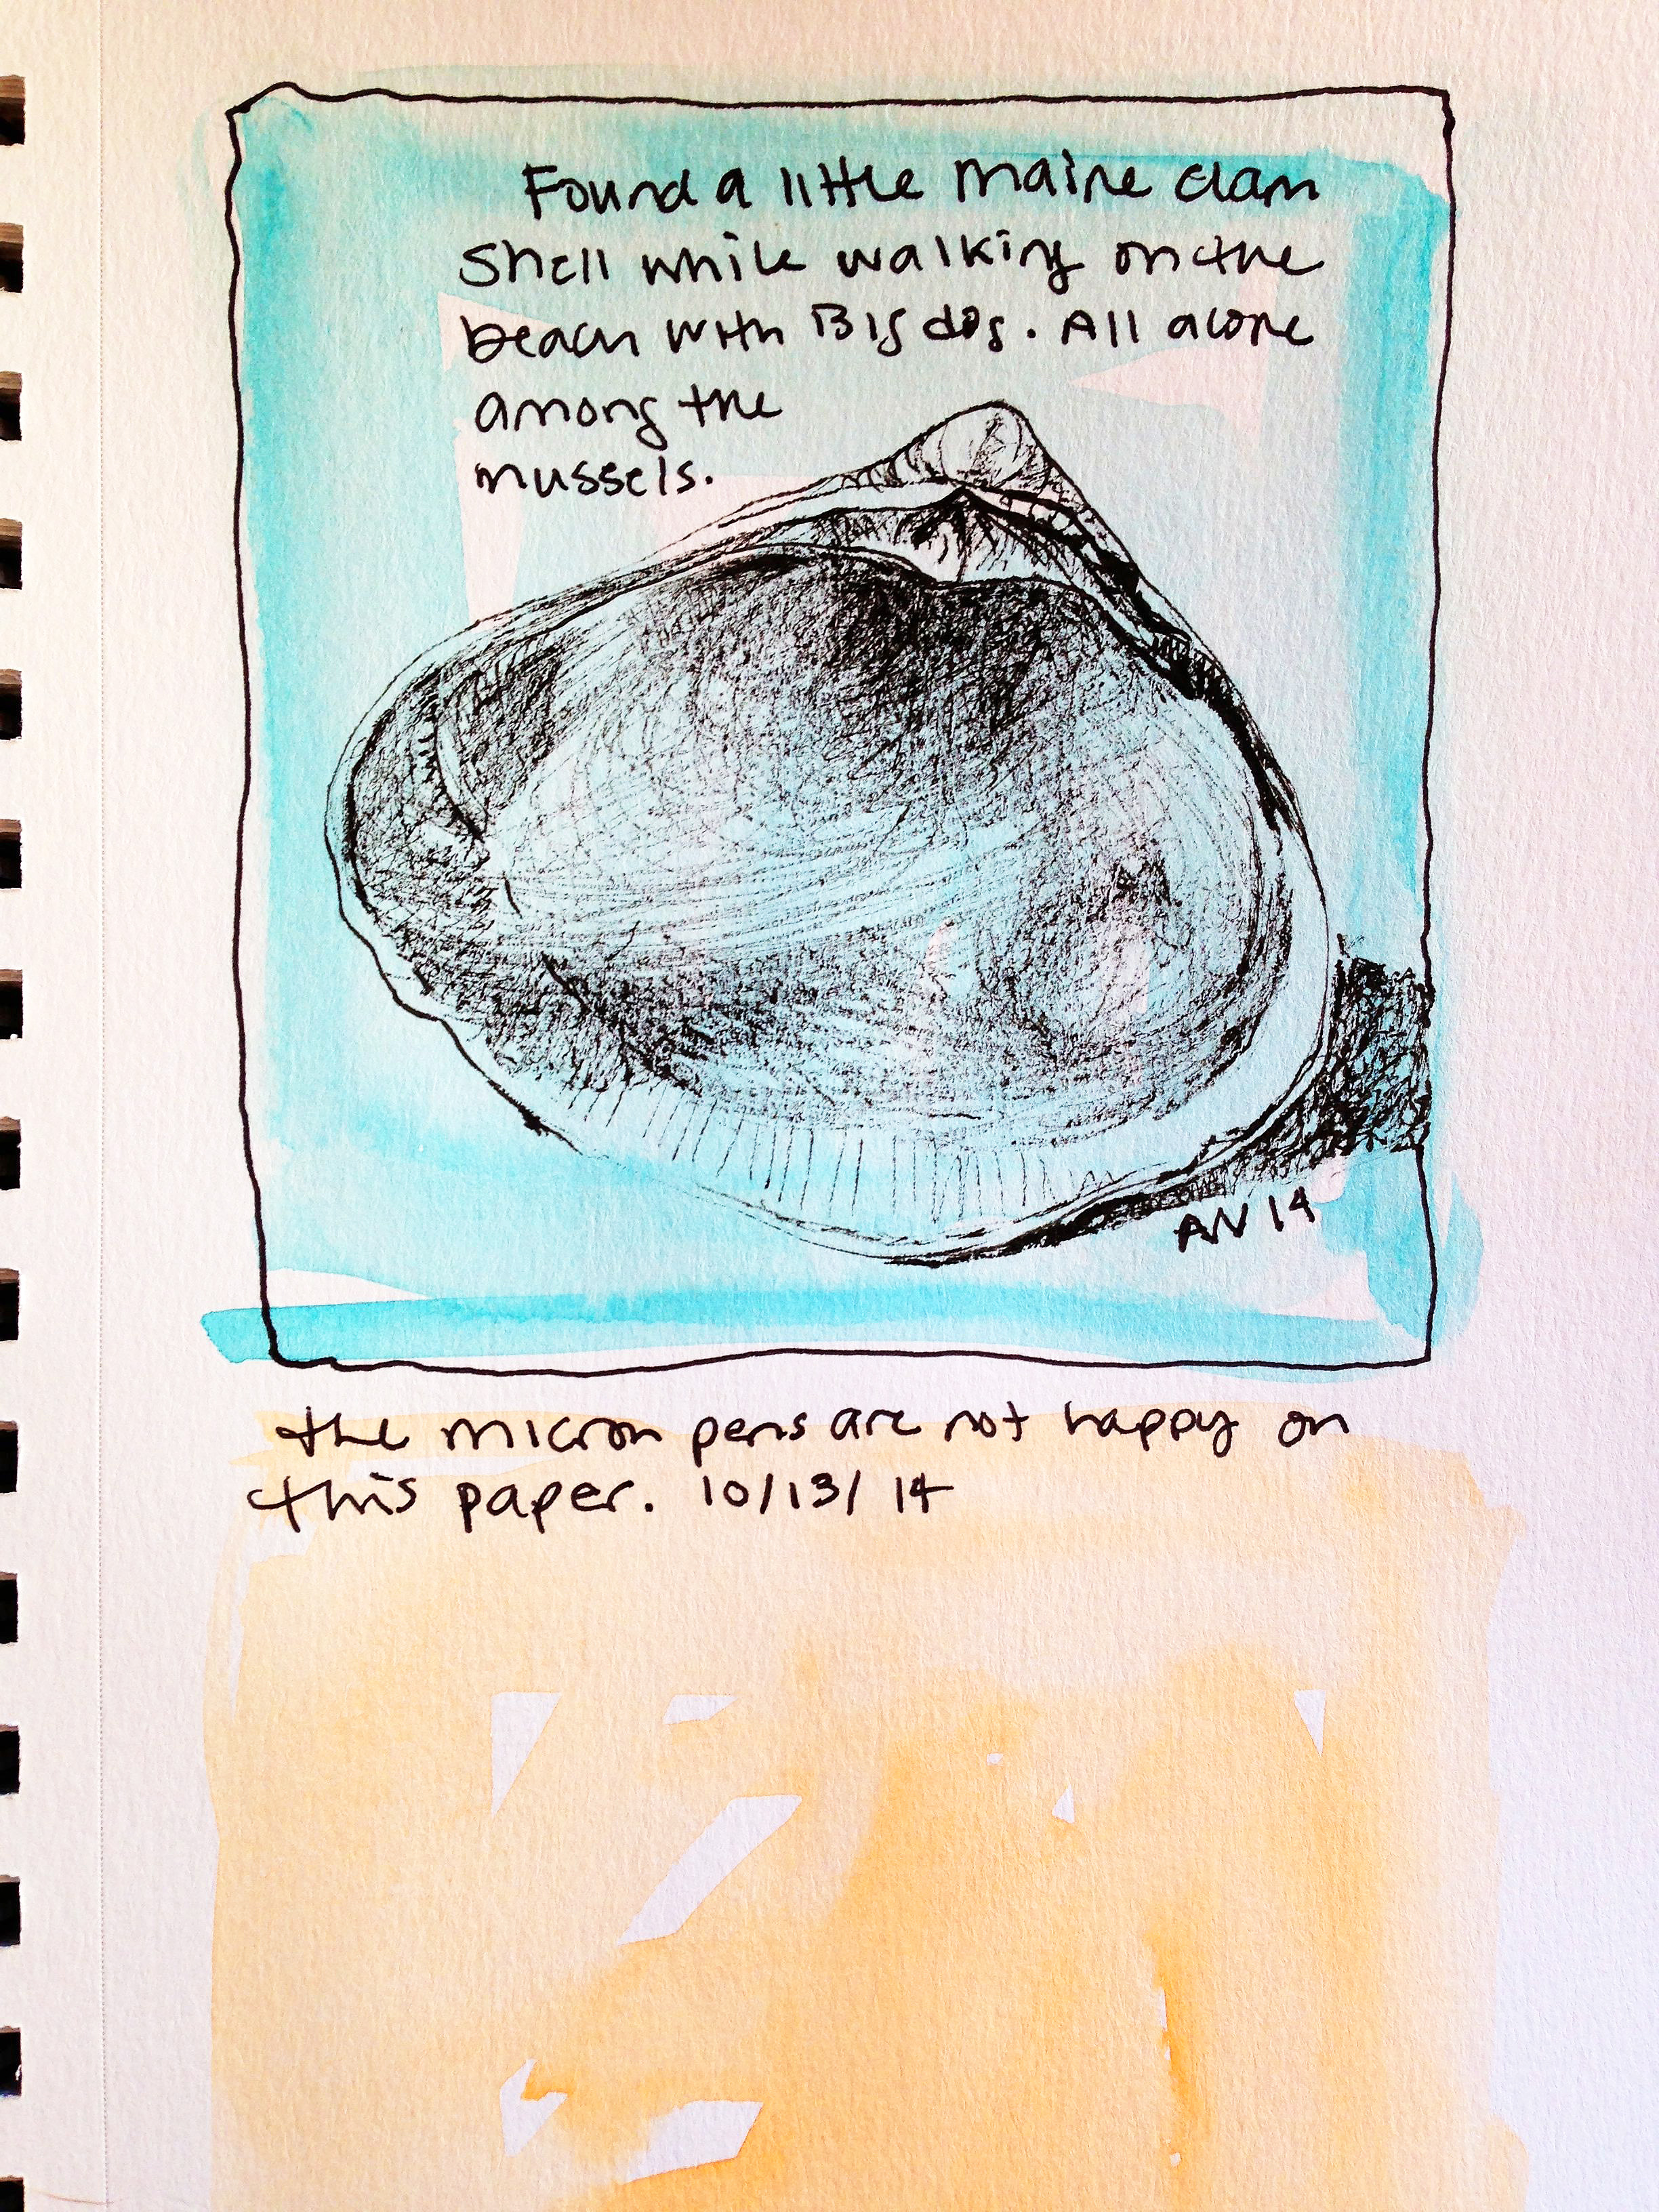 Found a little Maine clam
shell while walking on the
beach with Big dog. All alone
among the
mussels.
AN 14
the micron pens are not happy on
this paper. 10/13/14